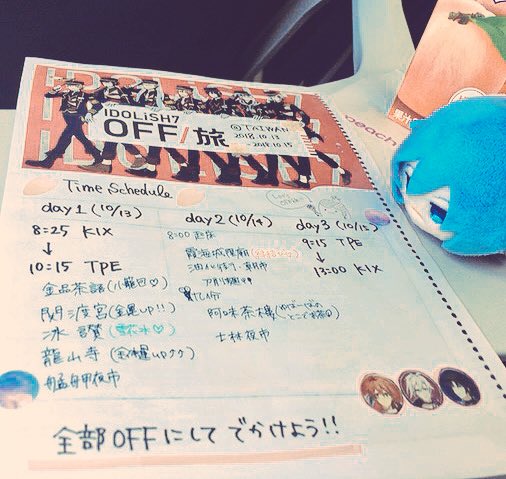 IDOLiSH7
OFF/旅
@TAIWAN
2018.10.13
-2018.10.15
peach
Time Schedule
day1 (10/13)
8:25 KIX
↓
10:15 TPE
金品茶語(小籠包♡)
(金運up!!)
冰讚
龍山寺
艋舺夜市
day2 (10/14)
8:00 起床
霞海城隍廟
阿妹茶樓
士林夜市
day3 (10/15)
9:15 TPE
↓
13:00 KIX
全部OFFにしてでかけよう!!